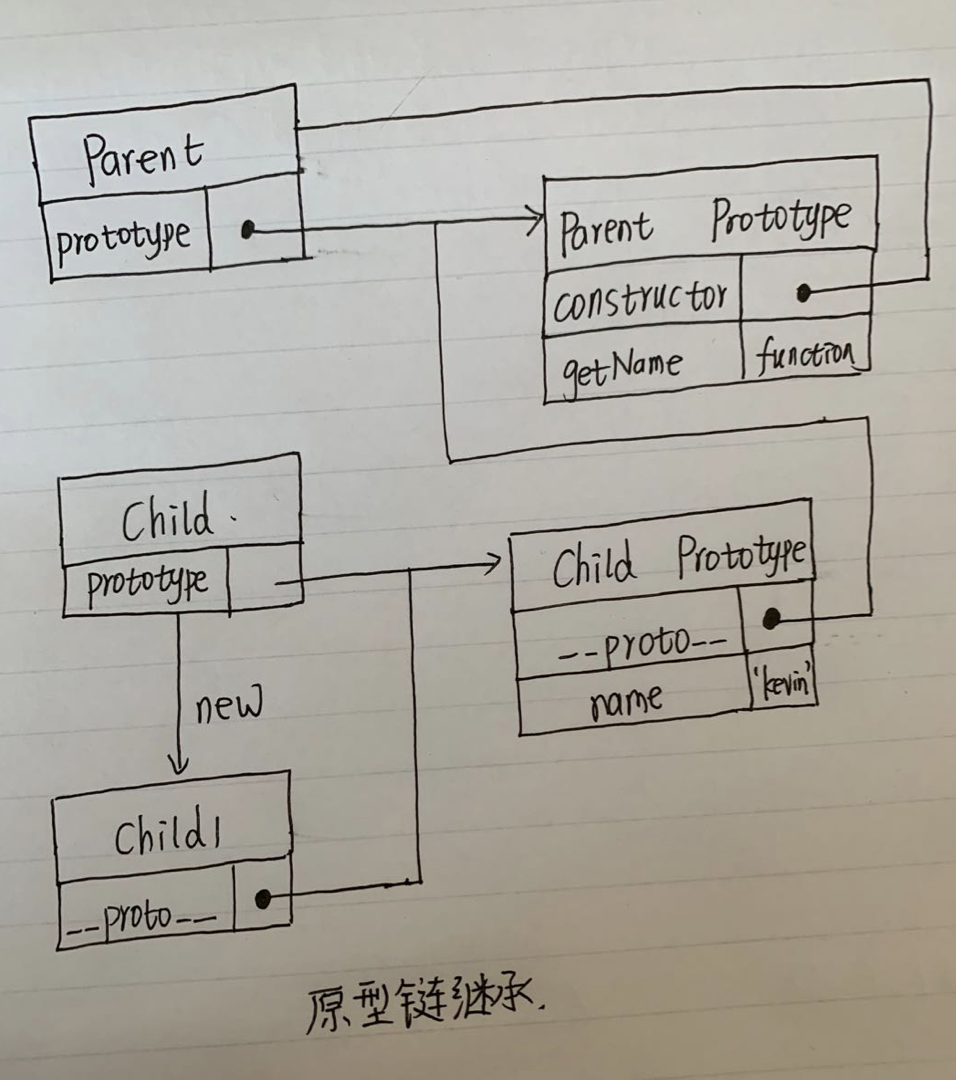 Parent
prototype
Parent Prototype
constructor
getName function
Child.
prototype
Child Prototype
--proto--
name 'kevin'
new
Child1
--proto--
原型链继承.